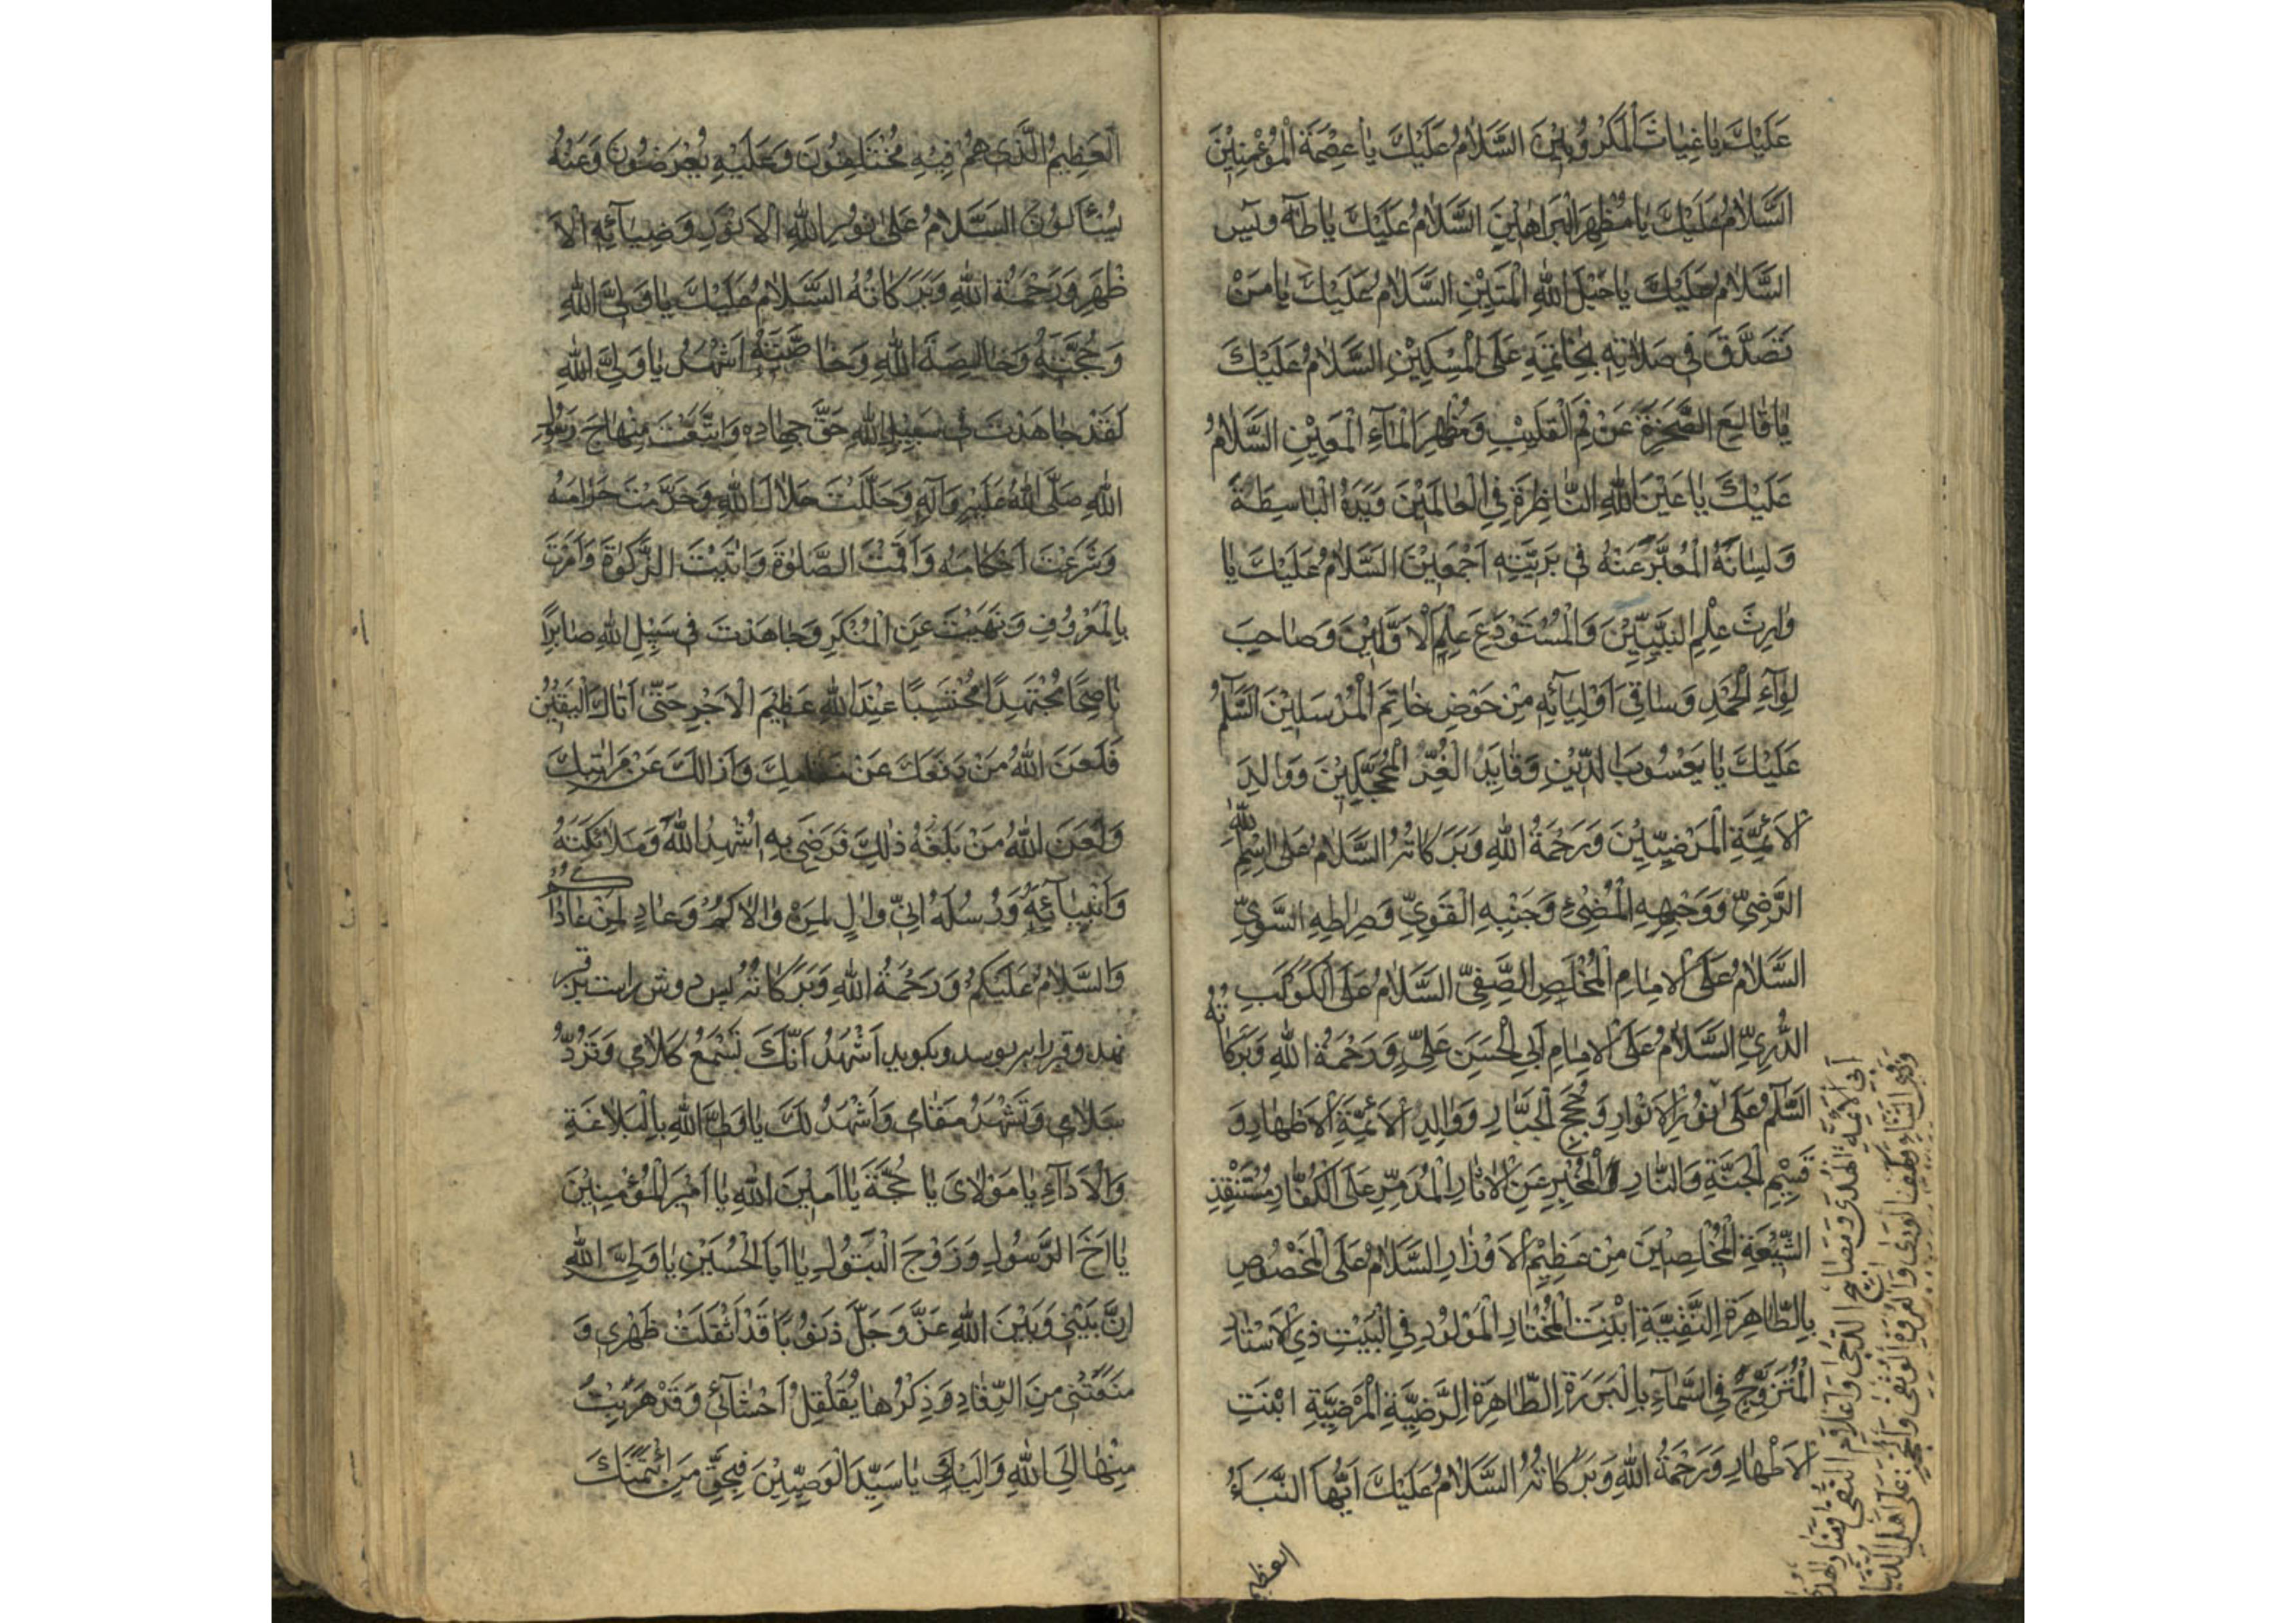 عَلَيْكَ يَا غِيَاثَ الْمَكْرُوبِيْنَ السَّلَامُ عَلَيْكَ يَا عِصْمَةَ الْمُؤْمِنِيْنَ
السَّلَامُ عَلَيْكَ يَا مُظْهِرَ الْبَرَاهِيْنِ السَّلَامُ عَلَيْكَ يَا طٰهٰ وَيٰس
السَّلَامُ عَلَيْكَ يَا حَبْلَ اللّٰهِ الْمَتِيْنِ السَّلَامُ عَلَيْكَ يَا مَنْ
تَصَدَّقَ فِي صَلَاتِهِ بِخَاتَمِهِ عَلَى الْمِسْكِيْنِ السَّلَامُ عَلَيْكَ
يَا قَالِعَ الصَّخْرَةِ عَنْ فَمِ الْقَلِيْبِ وَمُظْهِرَ الْمَاءِ الْمَعِيْنِ السَّلَامُ
عَلَيْكَ يَا عَيْنَ اللّٰهِ النَّاظِرَةَ فِي الْعَالَمِيْنَ وَيَدَهُ الْبَاسِطَةَ
وَلِسَانَهُ الْمُعَبِّرَ عَنْهُ فِي بَرِيَّتِهِ اَجْمَعِيْنَ السَّلَامُ عَلَيْكَ يَا
وَارِثَ عِلْمِ النَّبِيِّيْنَ وَالْمُسْتَوْدَعَ عِلْمِ الْاَوَّلِيْنَ وَصَاحِبَ
لِوَاءِ الْحَمْدِ وَسَاقِيَ اَوْلِيَائِهِ مِنْ حَوْضِ خَاتِمِ الْمُرْسَلِيْنَ السَّلٰمُ
عَلَيْكَ يَا يَعْسُوْبَ الدِّيْنِ وَقَايِدَ الْغُرِّ الْمُحَجَّلِيْنَ وَوَالِدَ
الْاَئِمَّةِ الْمَرْضِيِّيْنَ وَرَحْمَةُ اللّٰهِ وَبَرَكَاتُهُ السَّلَامُ عَلَى اسْمِ اللّٰهِ
الرَّضِيِّ وَوَجْهِهِ الْمُضِيْءِ وَجَنْبِهِ الْقَوِيِّ وَصِرَاطِهِ السَّوِيِّ
السَّلَامُ عَلَى الْاِمَامِ الْمُخْلَصِ الصَّفِيِّ السَّلَامُ عَلَى الْكَوْكَبِ
الدُّرِيِّ السَّلَامُ عَلَى الْاِمَامِ اَبِي الْحَسَنِ عَلِيٍّ وَرَحْمَةُ اللّٰهِ وَبَرَكَاتُهُ
السَّلٰمُ عَلَى نُوْرِ الْاَنْوَارِ وَحُجَجِ الْجَبَّارِ وَوَالِدِ الْاَئِمَّةِ الْاَطْهَارِ وَ
قَسِيْمِ الْجَنَّةِ وَالنَّارِ وَالْمُخْبِرِ عَنِ الْاٰثَارِ الْمُدَمِّرِ عَلَى الْكُفَّارِ مُسْتَنْقِذِ
الشِّيْعَةِ الْمُخْلِصِيْنَ مِنْ عَظِيْمِ الْاَوْزَارِ السَّلَامُ عَلَى الْمَخْصُوْصِ
بِالطَّاهِرَةِ التَّقِيَّةِ ابْنَتِ الْمُخْتَارِ الْمَوْلُوْدِ فِي الْبَيْتِ ذِي الْاَسْتَارِ
الْمُتَزَوِّجِ فِي السَّمَاءِ بِالْبَرَرَةِ الطَّاهِرَةِ الرَّضِيَّةِ الْمَرْضِيَّةِ ابْنَتِ
الْاَطْهَارِ وَرَحْمَةُ اللّٰهِ وَبَرَكَاتُهُ السَّلَامُ عَلَيْكَ اَيُّهَا النَّبَاءُ
العظيم
اَئِمَّةِ الْهُدَى وَمَصَابِيْحِ الدُّجَى وَاَعْلَامِ التُّقَى
وَكَهْفِ الْوَرَى وَالْعُرْوَةِ الْوُثْقَى وَالْحُجَّةِ عَلَى اَهْلِ الدُّنْيَا
الْعَظِيْمُ الَّذِي هُمْ فِيْهِ مُخْتَلِفُوْنَ وَعَلَيْهِ يُعْرَضُوْنَ وَعَنْهُ
يُسْأَلُوْنَ السَّلَامُ عَلَى نُوْرِ اللّٰهِ الْاَنْوَرِ وَضِيَائِهِ الْاَ
ظْهَرِ وَرَحْمَةُ اللّٰهِ وَبَرَكَاتُهُ السَّلَامُ عَلَيْكَ يَا وَلِيَّ اللّٰهِ
وَحُجَّتَهُ وَخَالِصَةَ اللّٰهِ وَخَاصَّتَهُ اَشْهَدُ يَا وَلِيَّ اللّٰهِ
لَقَدْ جَاهَدْتَ فِي سَبِيْلِ اللّٰهِ حَقَّ جِهَادِهِ وَاتَّبَعْتَ مِنْهَاجَ رَسُوْلِ
اللّٰهِ صَلَّى اللّٰهُ عَلَيْهِ وَآلِهِ وَحَلَّلْتَ حَلَالَ اللّٰهِ وَحَرَّمْتَ حَرَامَهُ
وَشَرَعْتَ اَحْكَامَهُ وَاَقَمْتَ الصَّلٰوةَ وَاٰتَيْتَ الزَّكٰوةَ وَاَمَرْتَ
بِالْمَعْرُوْفِ وَنَهَيْتَ عَنِ الْمُنْكَرِ وَجَاهَدْتَ فِي سَبِيْلِ اللّٰهِ صَابِرًا
نَاصِحًا مُجْتَهِدًا مُحْتَسِبًا عِنْدَ اللّٰهِ عَظِيْمَ الْاَجْرِ حَتّٰى اَتَاكَ الْيَقِيْنُ
فَلَعَنَ اللّٰهُ مَنْ دَفَعَكَ عَنْ مَقَامِكَ وَاَزَالَكَ عَنْ مَرَاتِبِكَ
وَلَعَنَ اللّٰهُ مَنْ بَلَغَهُ ذٰلِكَ فَرَضِيَ بِهِ اُشْهِدُ اللّٰهَ وَمَلَائِكَتَهُ
وَاَنْبِيَائَهُ وَرُسُلَهُ اَنِّي وَالٍ لِمَنْ وَالَاكُمْ وَعَادٍ لِمَنْ عَادَاكُمْ
وَالسَّلَامُ عَلَيْكُمْ وَرَحْمَةُ اللّٰهِ وَبَرَكَاتُهُ پس دوش راست بر قبر
نهد و قبر را ببوسد و بگوید اَشْهَدُ اَنَّكَ تَسْمَعُ كَلَامِي وَتَرُدُّ
سَلَامِي وَتَشْهَدُ مَقَامِي وَاَشْهَدُ لَكَ يَا وَلِيَّ اللّٰهِ بِالْبَلَاغَةِ
وَالْاَدَاءِ يَا مَوْلَايَ يَا حُجَّةَ يَا اَمِيْنَ اللّٰهِ يَا اَمِيْرَ الْمُؤْمِنِيْنَ
يَا اَخَ الرَّسُوْلِ وَزَوْجَ الْبَتُوْلِ يَا اَبَا الْحُسَيْنِ يَا وَلِيَّ اللّٰهِ
اِنَّ بَيْنِي وَبَيْنَ اللّٰهِ عَزَّ وَجَلَّ ذُنُوْبًا قَدْ اَثْقَلَتْ ظَهْرِي وَ
مَنَعَتْنِي مِنَ الرُّقَادِ وَذِكْرُهَا يُقَلْقِلُ اَحْشَائِي وَقَدْ هَرَبْتُ
مِنْهَا اِلَى اللّٰهِ وَاِلَيْكَ يَا سَيِّدَ الْوَصِيِّيْنَ فَبِحَقِّ مَنِ ائْتَمَنَكَ